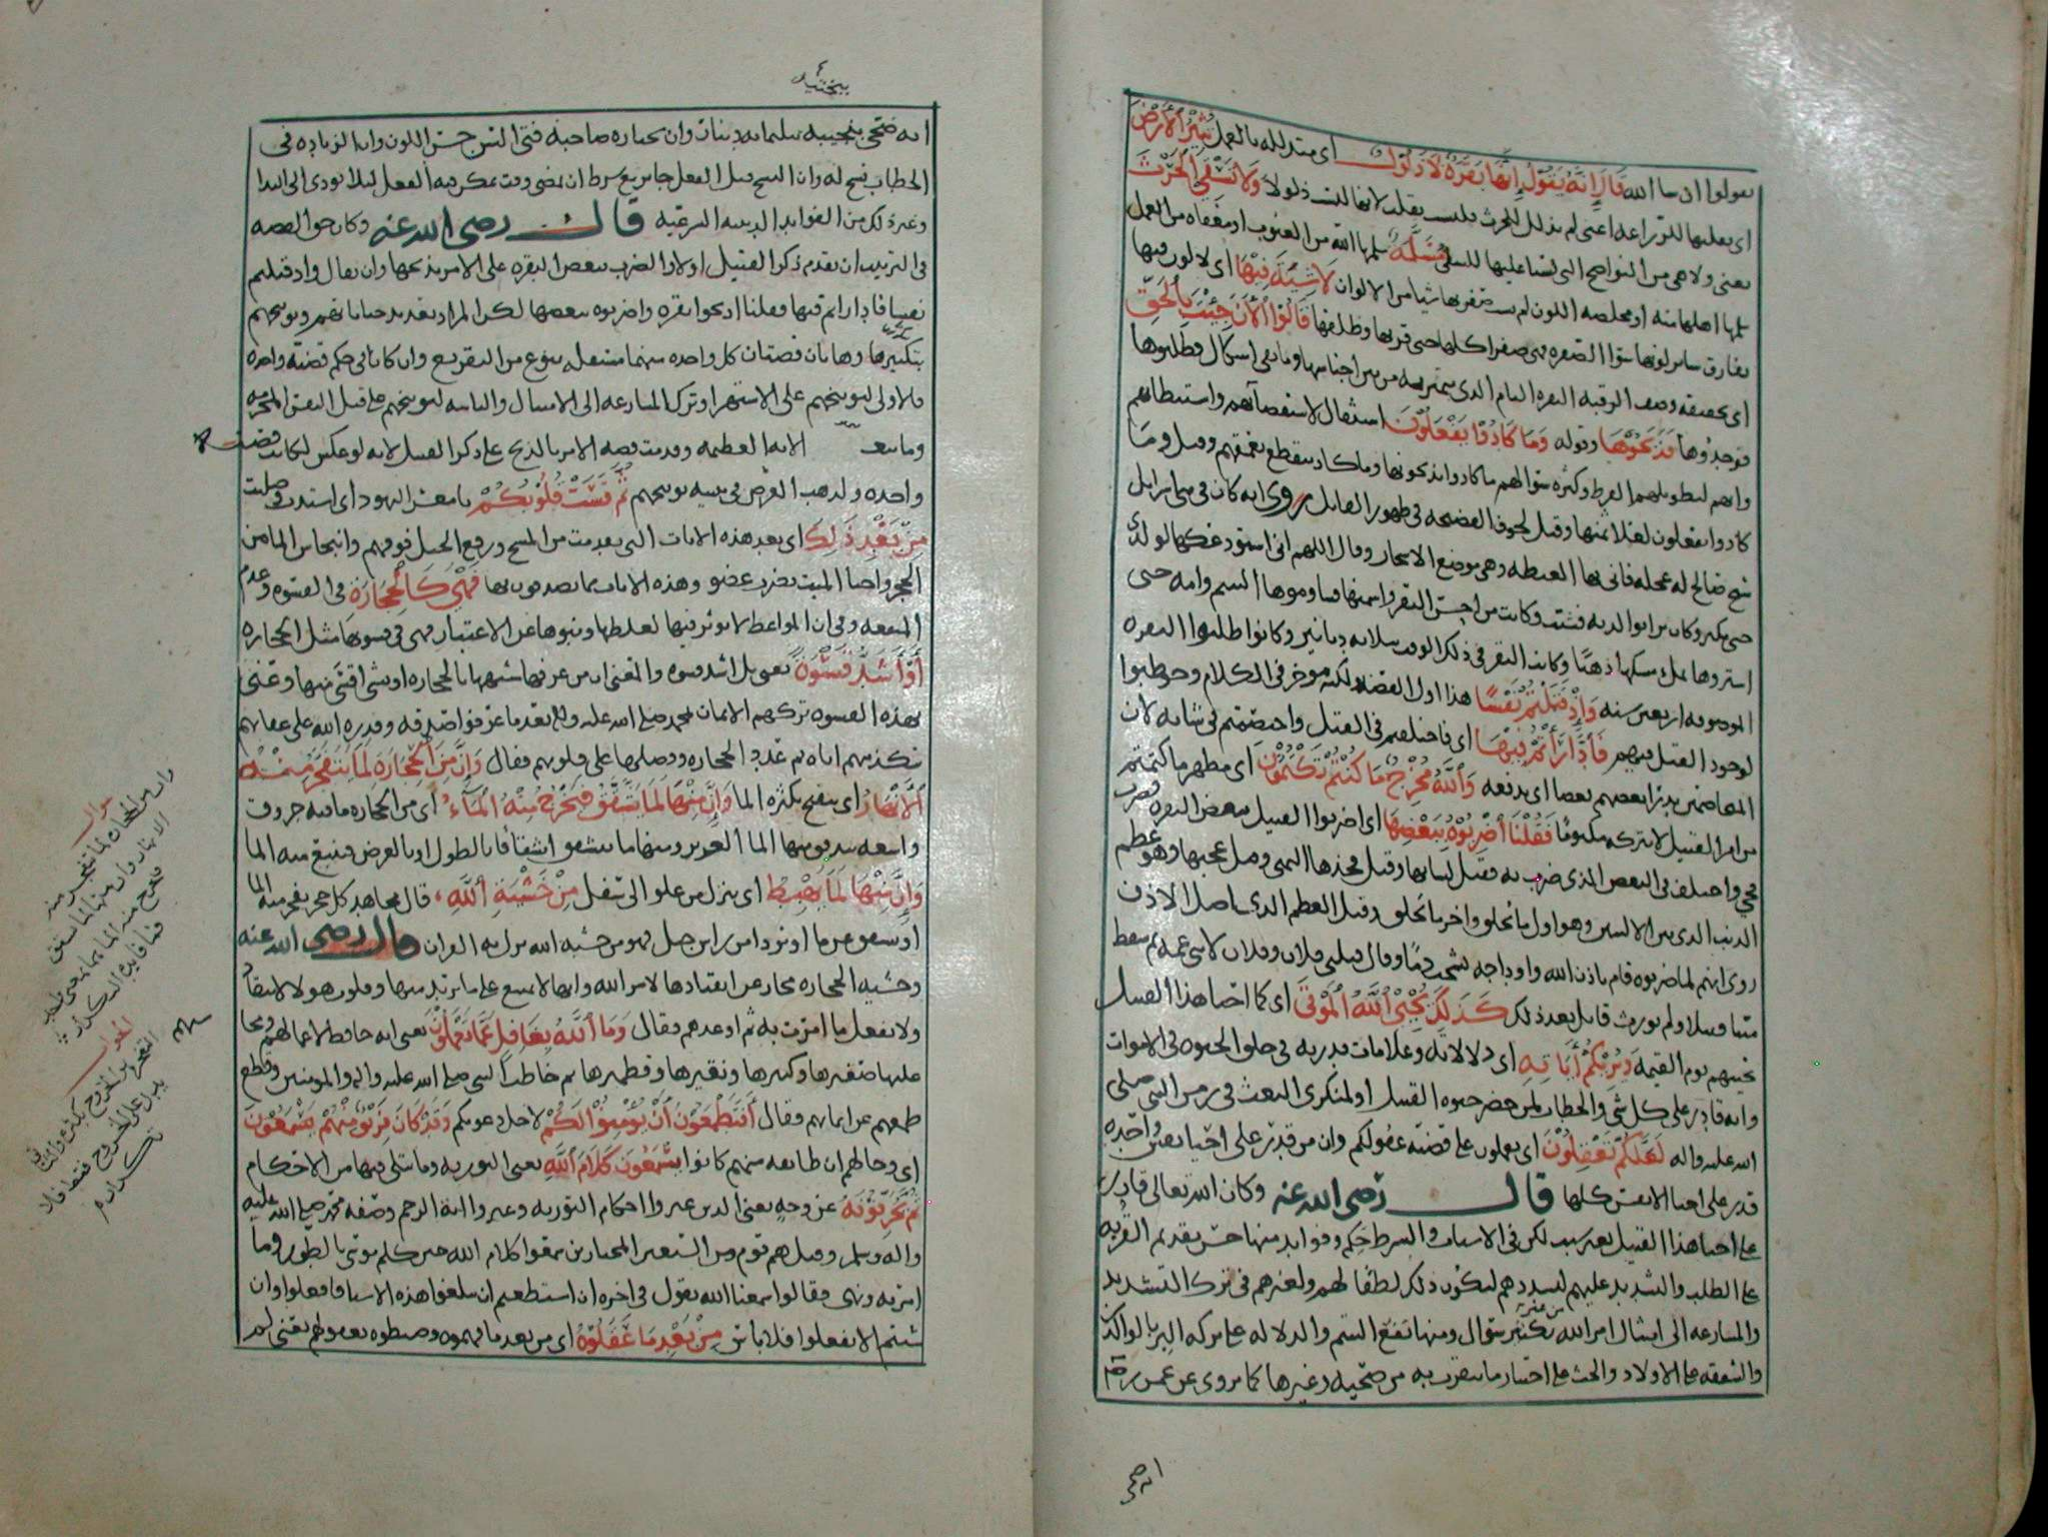 يقولوا ان شا الله قَالَ إِنَّهُ يَقُولُ إِنَّهَا بَقَرَةٌ لَا ذَلُولٌ اى مبتذلله بالعمل تُثِيرُ ٱلْأَرْضَ
اى يقلبها للزراعه اعنى لم يذلل للحرث فليست يقلب لانها ليست ذلولا وَلَا تَسْقِي الْحَرْثَ
يعنى ولا هى من النواضح التى يسنا عليها للسقى مُسَلَّمَةٌ سلمها الله من العيوب او معفاه من العمل
سلمها اهلها منه او مخلصه اللون لم يشب صفرتها شيا من الالوان لَا شِيَةَ فِيهَا اى لا لون فيها
يفارق ساير لونها سوا الصفره فهى صفرا كلها حتى قرنها وظلفها قَالُوا ٱلْآنَ جِئْتَ بِٱلْحَقِّ
اى بحقيقه وصف البقره التام الذى تتميز به من بين اجناسها وما بقى اشكال فطلبوها
فوجدوها فَذَبَحُوهَا وقوله وَمَا كَادُوا يَفْعَلُونَ استثقال لاستقصآئهم واستبطائهم
وانهم لتطويلهم المفرط وكثره سوالهم ما كادوا يذبحونها وما كاد ينقطع تعمقهم وقيل وما
كادوا يفعلون لغلا ثمنها وقيل لخوف الفضيحه فى ظهور القاتل روى انه كان فى بنى اسرايل
شيخ صالح له عجله فاتى بها الغيطه وهى موضع الاشجار وقال اللهم انى استودعكها لولدى
حتى يكبر وكان برا بوالديه فشبت وكانت من احسن البقر واسمنها فساوموها اليتيم وامه حتى
اشتروها بملء مسكها ذهبًا وكانت البقر فى ذلك الوقت بثلاثه دنانير وكانوا طلبوا البقره
الموصوفه اربعين سنه وَإِذْ قَتَلْتُمْ نَفْسًا هذا اول القصه ولكنه موخر فى الكلام وخوطبوا
لوجود القتل فيهم فَٱدَّارَأْتُمْ فِيهَا اى فاختلفتم فى القتل واختصمتم فى شانه لان
المتخاصمين يدرا بعضهم بعضا اى يدفعه وَٱللَّهُ مُخْرِجٌ مَا كُنْتُمْ تَكْتُمُونَ اى مظهر ما كتمتم
من امر القتيل لا يتركه مكتومًا فَقُلْنَا ٱضْرِبُوهُ بِبَعْضِهَا اى اضربوا القتيل ببعض البقره فضرب
فحي واختلف فى البعض الذى ضرب به فقيل لسانها وقيل فخذها اليمنى وقيل عجبها وهو عظم
الذنب الذى بين الاليتين وهو اول ما يخلق واخر ما يخلق وقيل العظم الذى باصل الاذن
روى انهم لما ضربوه قام باذن الله واوداجه تشخب دمًا وقال قتلنى فلان وفلان لابنى عمه ثم سقط
ميتا ولم يورث قاتل بعد ذلك كَذَلِكَ يُحْيِي ٱللَّهُ ٱلْمَوْتَى اى كما احيا هذا القتيل
يحييهم يوم القيمه وَيُرِيكُمْ آيَاتِهِ اى دلالاته وعلامات قدرته فى خلق الحيوه فى الاموات
وانه قادر على كل شى والخطاب لمن حضر حيوه القتيل او لمنكرى البعث فى زمن النبى صلى
الله عليه واله لَعَلَّكُمْ تَعْقِلُونَ اى تعملون على قضيه عقولكم وان من قدر على احيا نفس واحده
قدر على احيا الانفس كلها قال رضى الله عنه وكان الله تعالى قادرا
على احيا هذا القتيل بغير سبب لكن فى الاسباب والشرط حكم وفوايد منها حسن تقديم القربه
على الطلب والتشديد عليهم لتشددهم ليكون ذلك لطفًا لهم ولغيرهم فى ترك التشديد
والمسارعه الى امتثال امر الله من غير تكثير سوال ومنها نفع اليتيم والدلاله على بركه البر بالوالدين
والشفقه على الاولاد والحث على اختيار ما يتقرب به من ضحيه وغيرها كما روى عن عمر رضى
انه ضحى
بنجيبه
انه ضحى بنجيبه بثلثمايه دينار وان يختاره صاحبه فتى السن حسن اللون وان الزياده فى
الخطاب نسخ له وان النسخ قبل الفعل جايز بشرط ان يمضى وقت يمكن فيه الفعل ليلا يودى الى البدا
وغير ذلك من الفوايد الدينيه الشرعيه قال رضى الله عنه وكان حق القصه
فى الترتيب ان يقدم ذكر القتيل اولا والضرب ببعض البقره على الامر بذبحها وان يقال واذ قتلتم
نفسا فادارأتم فيها فقلنا اذبحوا بقره واضربوه ببعضها لكن المراد تعديد جناياتهم وتوبيخهم
بتكثيرها وهاتان قصتان كل واحده منهما مستقله بنوع من التقريع وان كانا فى حكم قصة واحده
فالاولى لتوبيخهم على الاستهزا وترك المسارعه الى الامتثال والثانيه لتوبيخهم على قتل النفس المحرمه
وما يتبع الايه العظيمه وقدمت قصه الامر بالذبح على ذكر القتيل لانه لو عكس لكانت قصة
واحده ولذهب الغرض فى تثنيه توبيخهم ثُمَّ قَسَتْ قُلُوبُكُمْ يا معشر اليهود اى اشتدت وصلبت
مِنْ بَعْدِ ذَلِكَ اى بعد هذه الايات التى تقدمت من المسخ ورفع الجبل فوقهم وانبجاس الما من
الحجر واحيا الميت بضرب عضو وهذه الايات مما يصدقون بها فَهِيَ كَٱلْحِجَارَةِ فى القسوه وعدم
المنفعه وفى ان المواعظ لا توثر فيها لغلظها ونبوها عن الاعتبار فهى فى قسوتها مثل الحجاره
أَوْ أَشَدُّ قَسْوَةً يعنى بل اشد قسوه والمعنى ان من عرفها شبهها بالحجاره او بشى اقسى منها وعنى
بهذه القسوه تركهم الايمان بمحمد صلى الله عليه واله بعد ما عرفوا صدقه وقدره الله على عقابهم
بتكذيبهم اياه ثم عذر الحجاره وفضلها على قلوبهم فقال وَإِنَّ مِنَ ٱلْحِجَارَةِ لَمَا يَتَفَجَّرُ مِنْهُ
ٱلْأَنْهَارُ اى يتفتح بكثره الما وَإِنَّ مِنْهَا لَمَا يَشَّقَّقُ فَيَخْرُجُ مِنْهُ ٱلْمَاءُ اى من الحجاره ما فيه خروق
واسعه يتدفق منها الما الغزير ومنها ما ينشق انشقاقا بالطول او بالعرض فينبع منه الما
وَإِنَّ مِنْهَا لَمَا يَهْبِطُ اى ينزل من علو الى سفل مِنْ خَشْيَةِ ٱللَّهِ، قال مجاهد كل حجر تفجر منه الما
او تشقق عن ما او تردا من راس جبل فهو من خشيه الله نزل به القران قال رضى الله عنه
وخشيه الحجاره مجاز عن انقيادها لامر الله وانها لا تمتنع على ما يريد منها وقلوب هولا لا تنقاد
ولا تفعل ما امرت به ثم اوعدهم فقال وَمَا ٱللَّهُ بِغَافِلٍ عَمَّا تَعْمَلُونَ يعنى انه حافظ لاعمالهم ومجاز
عليها صغيرها وكبيرها ونقيرها وقطميرها ثم خاطب النبى صلى الله عليه واله والمومنين وقطع
طمعهم عن ايمانهم فقال أَفَتَطْمَعُونَ أَنْ يُؤْمِنُوا لَكُمْ لاجل دعوتكم وَقَدْ كَانَ فَرِيقٌ مِنْهُمْ يَسْمَعُونَ
اى وحالهم ان طايفه منهم كانوا يَسْمَعُونَ كَلَامَ ٱللَّهِ يعنى التوريه وما يتلى فيها من الاحكام
ثُمَّ يُحَرِّفُونَهُ عن وجهه يعنى الذين غيروا احكام التوريه وغيروا اية الرجم وصفه محمد صلى الله عليه
واله وسلم وقيل هم قوم من السبعين المختارين سمعوا كلام الله حين كلم موسى بالطور وما
امر به ونهى فقالوا سمعنا الله يقول فى اخره ان استطعتم ان تفعلوا هذه الاشيا فافعلوا وان
شيتم الا تفعلوا فلا باس مِنْ بَعْدِ مَا عَقَلُوهُ اى من بعد ما فهموه وضبطوه بعقولهم يعنى لم
سوال
وان من الحجاره لما يتفجر منه
الانهار وان منها لما يشقق
فيخرج منه الما
فما فايده التكرار
الجواب
التفجر
يدل على الخروج فقط فلا
تكرار